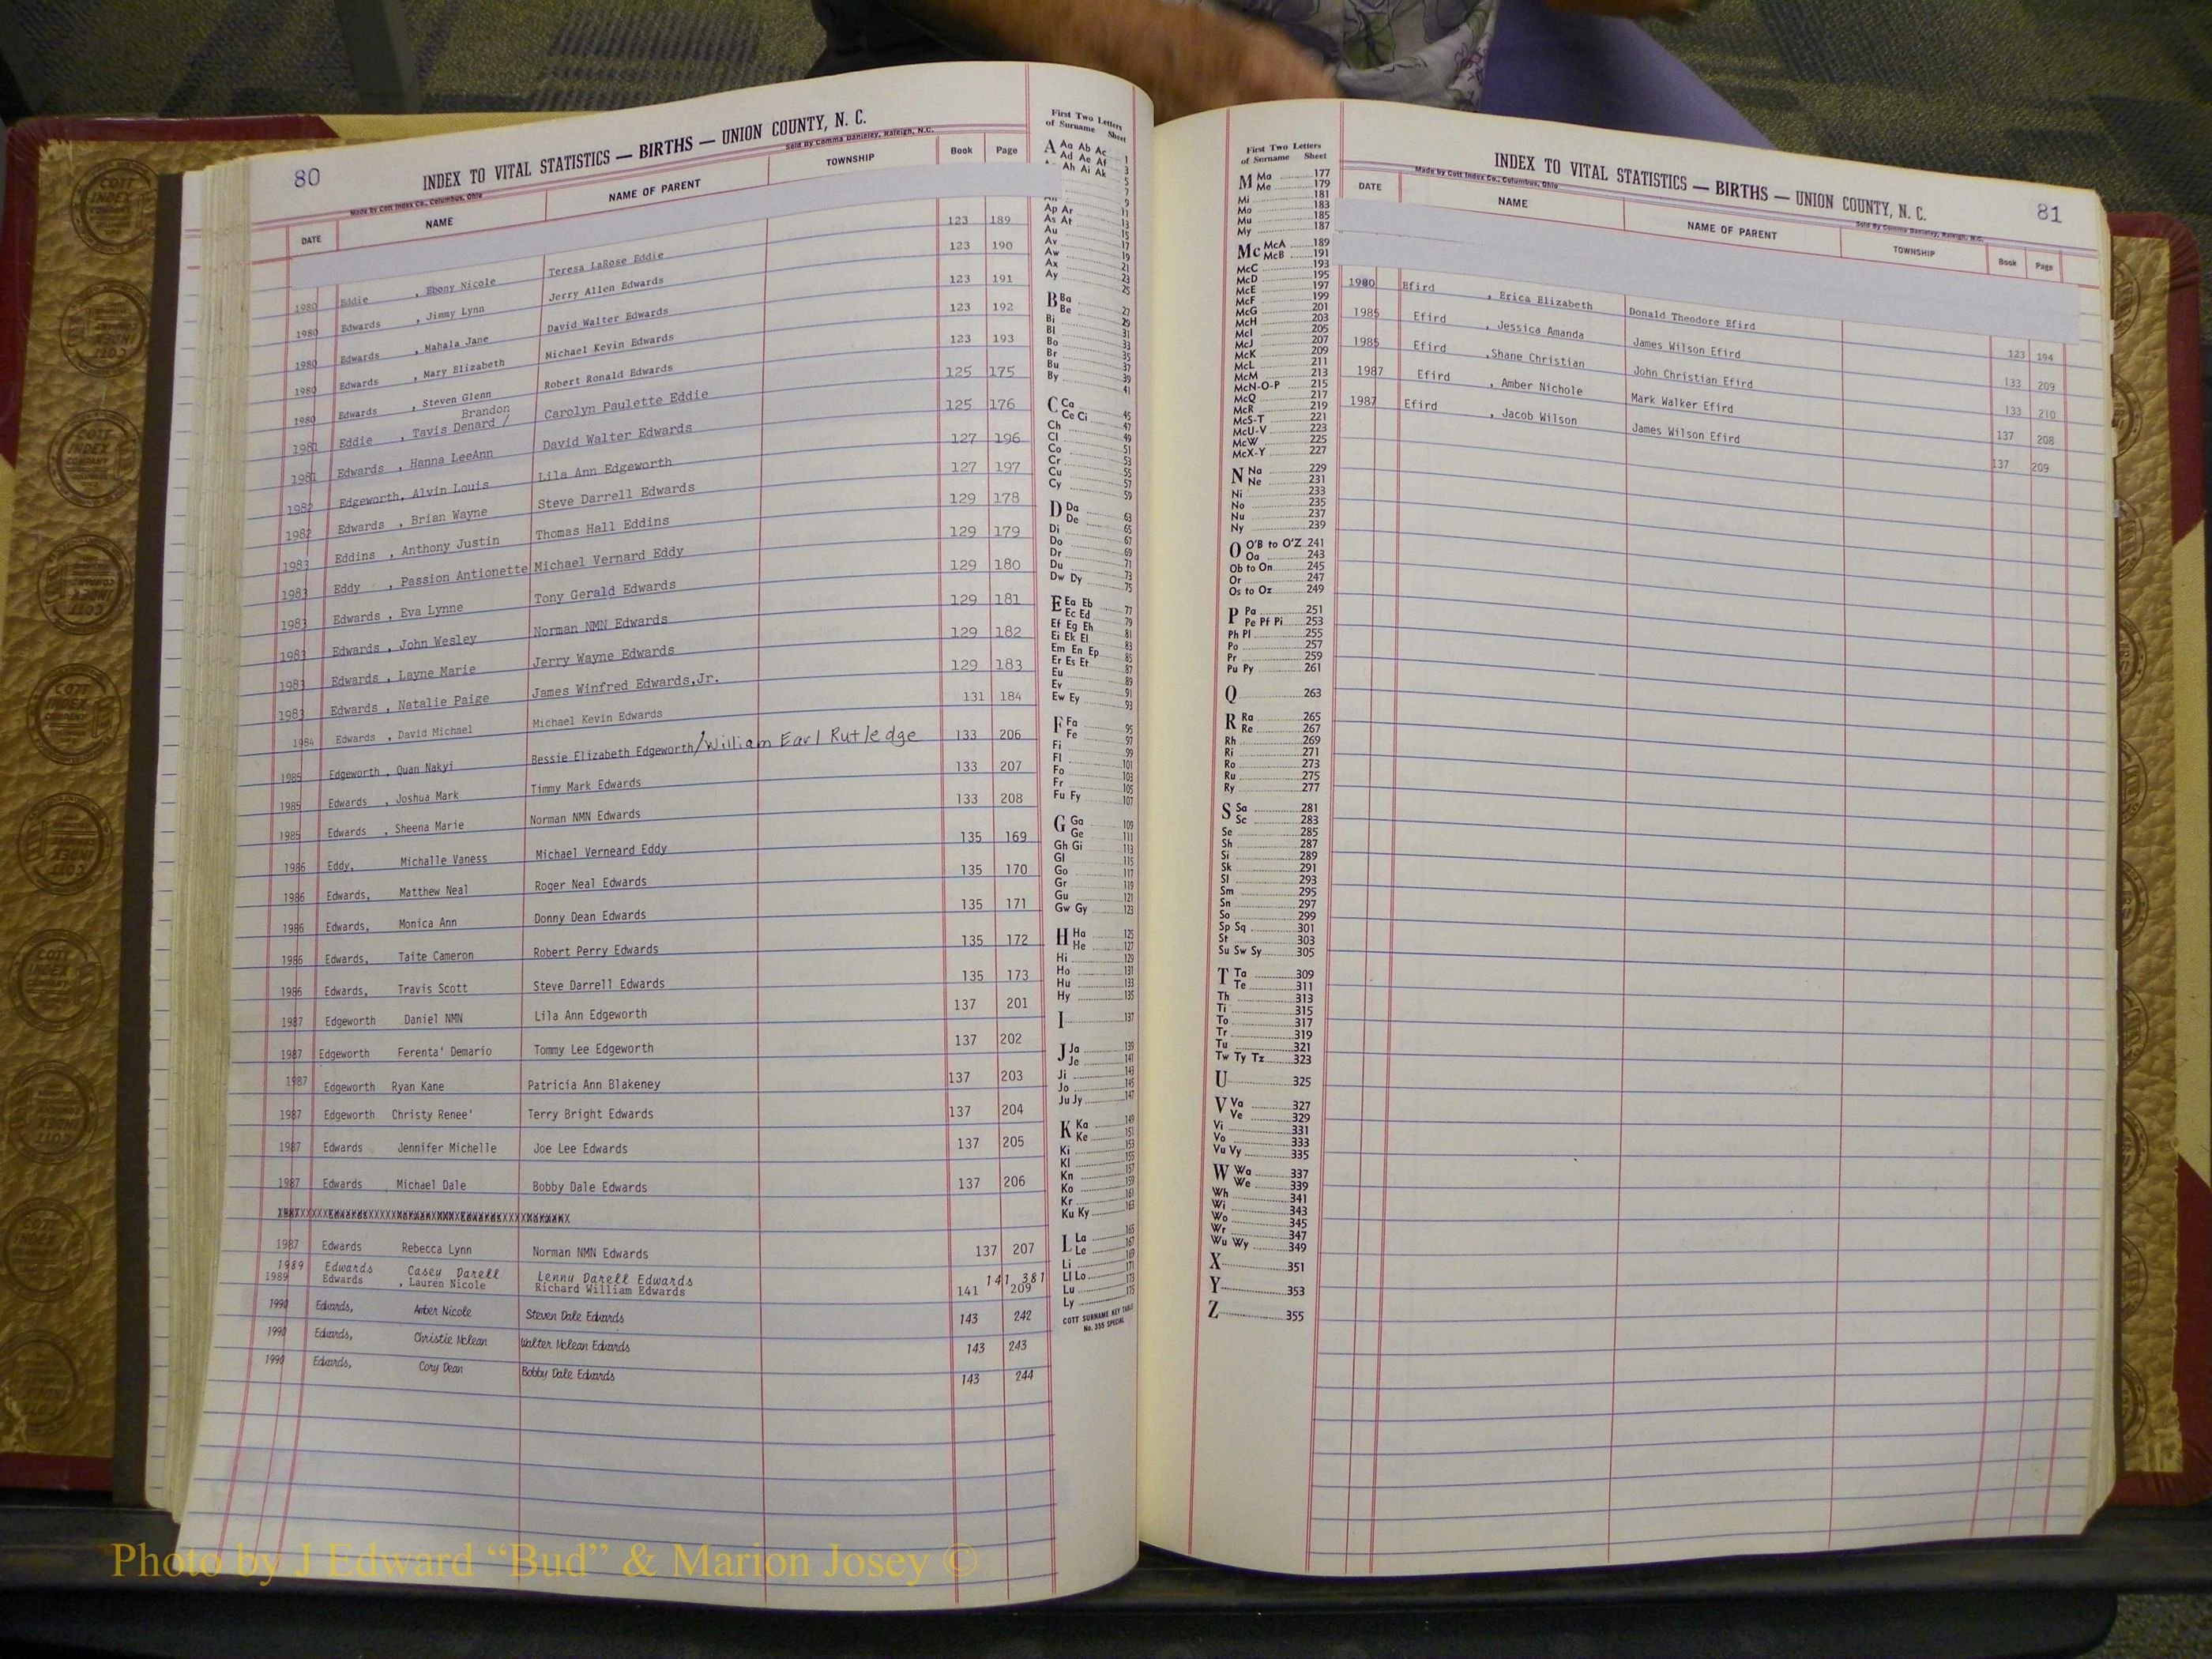 80
INDEX TO VITAL STATISTICS — BIRTHS — UNION COUNTY, N. C.
Made by Cott Index Co., Columbus, Ohio
Sold By Comma Danieley, Raleigh, N.C.
DATE NAME NAME OF PARENT TOWNSHIP Book Page
1980 Eddie , Ebony Nicole Teresa LaRose Eddie 123 189
1980 Edwards , Jimmy Lynn Jerry Allen Edwards 123 190
1980 Edwards , Mahala Jane David Walter Edwards 123 191
1980 Edwards , Mary Elizabeth Michael Kevin Edwards 123 192
1980 Edwards , Steven Glenn Robert Ronald Edwards 123 193
Brandon
1981 Eddie , Tavis Denard / Carolyn Paulette Eddie 125 175
1981 Edwards , Hanna LeeAnn David Walter Edwards 125 176
1982 Edgeworth, Alvin Louis Lila Ann Edgeworth 127 196
1982 Edwards , Brian Wayne Steve Darrell Edwards 127 197
1983 Eddins , Anthony Justin Thomas Hall Eddins 129 178
1983 Eddy , Passion Antionette Michael Vernard Eddy 129 179
1983 Edwards , Eva Lynne Tony Gerald Edwards 129 180
1983 Edwards , John Wesley Norman NMN Edwards 129 181
1983 Edwards , Layne Marie Jerry Wayne Edwards 129 182
1983 Edwards , Natalie Paige James Winfred Edwards,Jr. 129 183
1984 Edwards , David Michael Michael Kevin Edwards 131 184
1985 Edgeworth , Quan Nakyi Bessie Elizabeth Edgeworth/William Earl Rutledge 133 206
1985 Edwards , Joshua Mark Timmy Mark Edwards 133 207
1985 Edwards , Sheena Marie Norman NMN Edwards 133 208
1986 Eddy, Michalle Vaness Michael Verneard Eddy 135 169
1986 Edwards, Matthew Neal Roger Neal Edwards 135 170
1986 Edwards, Monica Ann Donny Dean Edwards 135 171
1986 Edwards, Taite Cameron Robert Perry Edwards 135 172
1986 Edwards, Travis Scott Steve Darrell Edwards 135 173
1987 Edgeworth Daniel NMN Lila Ann Edgeworth 137 201
1987 Edgeworth Ferenta' Demario Tommy Lee Edgeworth 137 202
1987 Edgeworth Ryan Kane Patricia Ann Blakeney 137 203
1987 Edgeworth Christy Renee' Terry Bright Edwards 137 204
1987 Edwards Jennifer Michelle Joe Lee Edwards 137 205
1987 Edwards Michael Dale Bobby Dale Edwards 137 206
1987 Edwards Rebecca Lynn Norman NMN Edwards 137 207
1989 Edwards Casey Darell Lenny Darell Edwards 141 381
1989 Edwards , Lauren Nicole Richard William Edwards 141 209
1990 Edwards, Amber Nicole Steven Dale Edwards 143 242
1990 Edwards, Christie Mclean Walter Mclean Edwards 143 243
1990 Edwards, Cory Dean Bobby Dale Edwards 143 244
First Two Letters
of Surname Sheet
A Aa Ab Ac 1
Ad Ae Af 3
Ah Ai Ak 5
7
9
Ap Ar 11
As At 13
Au 15
Av 17
Aw 19
Ax 21
Ay 23
25
B Ba 27
Be 29
Bi 31
Bl 33
Bo 35
Br 37
Bu 39
By 41
C Ca 45
Ce Ci 47
Ch 49
Cl 51
Co 53
Cr 55
Cu 57
Cy 59
D Da 63
De 65
Di 67
Do 69
Dr 71
Du 73
Dw Dy 75
E Ea Eb 77
Ec Ed 79
Ef Eg Eh 81
Ei Ek El 83
Em En Ep 85
Er Es Et 87
Eu 89
Ev 91
Ew Ey 93
F Fa 95
Fe 97
Fi 99
Fl 101
Fo 103
Fr 105
Fu Fy 107
G Ga 109
Ge 111
Gh Gi 113
Gl 115
Go 117
Gr 119
Gu 121
Gw Gy 123
H Ha 125
He 127
Hi 129
Ho 131
Hu 133
Hy 135
I 137
J Ja 139
Je 141
Ji 143
Jo 145
Ju Jy 147
K Ka 149
Ke 151
Ki 153
Kl 155
Kn 157
Ko 159
Kr 161
Ku Ky 163
L La 165
Le 167
Li 169
Ll Lo 171
Lu 173
Ly 175
COTT SURNAME KEY TABLE
No. 355 SPECIAL
First Two Letters
of Surname Sheet
M Ma 177
Me 179
Mi 181
Mo 183
Mu 185
My 187
Mc McA 189
McB 191
McC 193
McD 195
McE 197
McF 199
McG 201
McH 203
McI 205
McJ 207
McK 209
McL 211
McM 213
McN-O-P 215
McQ 217
McR 219
McS-T 221
McU-V 223
McW 225
McX-Y 227
N Na 229
Ne 231
Ni 233
No 235
Nu 237
Ny 239
O O'B to O'Z 241
Oa 243
Ob to On 245
Or 247
Os to Oz 249
P Pa 251
Pe Pf Pi 253
Ph Pl 255
Po 257
Pr 259
Pu Py 261
Q 263
R Ra 265
Re 267
Rh 269
Ri 271
Ro 273
Ru 275
Ry 277
S Sa 281
Sc 283
Se 285
Sh 287
Si 289
Sk 291
Sl 293
Sm 295
Sn 297
So 299
Sp Sq 301
St 303
Su Sw Sy 305
T Ta 309
Te 311
Th 313
Ti 315
To 317
Tr 319
Tu 321
Tw Ty Tz 323
U 325
V Va 327
Ve 329
Vi 331
Vo 333
Vu Vy 335
W Wa 337
We 339
Wh 341
Wi 343
Wo 345
Wr 347
Wu Wy 349
X 351
Y 353
Z 355
INDEX TO VITAL STATISTICS — BIRTHS — UNION COUNTY, N. C.
81
Made by Cott Index Co., Columbus, Ohio
Sold By Comma Danieley, Raleigh, N.C.
DATE NAME NAME OF PARENT TOWNSHIP Book Page
1980 Efird , Erica Elizabeth Donald Theodore Efird 123 194
1985 Efird , Jessica Amanda James Wilson Efird 133 209
1985 Efird ,Shane Christian John Christian Efird 133 210
1987 Efird , Amber Nichole Mark Walker Efird 137 208
1987 Efird , Jacob Wilson James Wilson Efird 137 209
Photo by J Edward “Bud” & Marion Josey ©